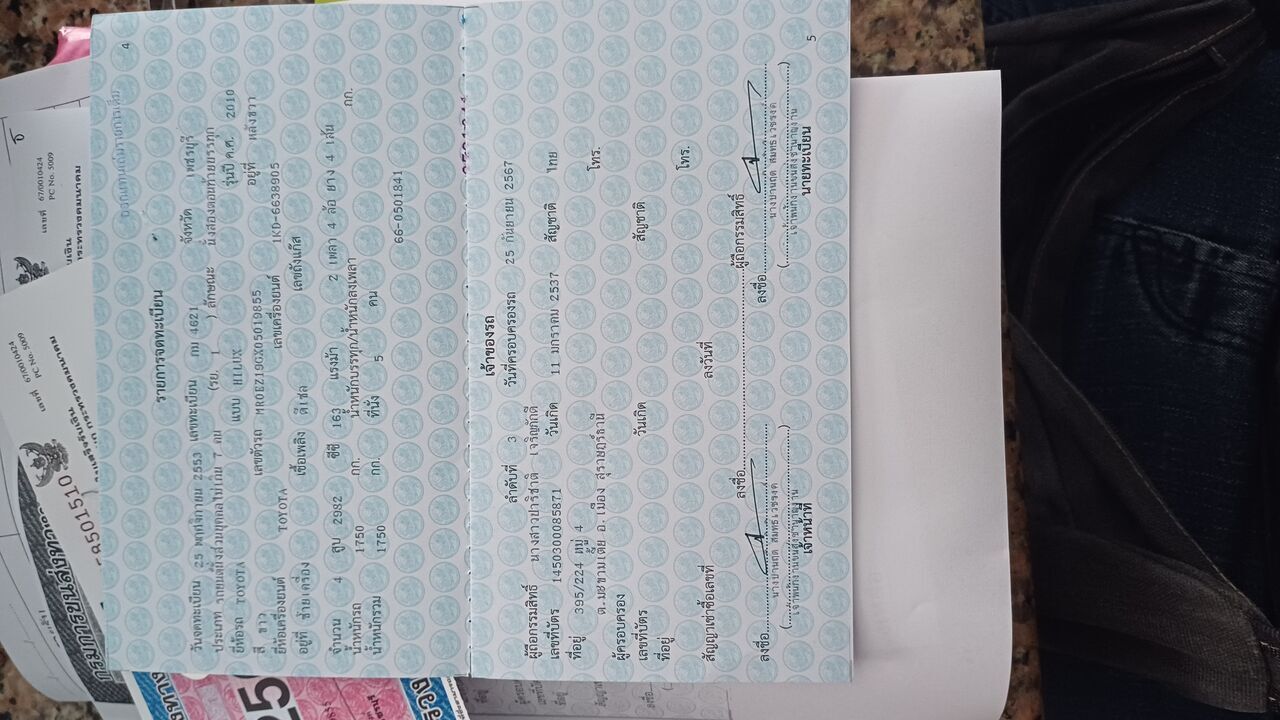 4
รายการจดทะเบียน
วันจดทะเบียน 25 พฤศจิกายน 2553 เลขทะเบียน กม 4621 จังหวัด เพชรบุรี
ประเภท รถยนต์นั่งส่วนบุคคลไม่เกิน 7 คน (รย. 1 ) ลักษณะ นั่งสองตอนท้ายบรรทุก
ยี่ห้อรถ TOYOTA แบบ HILUX รุ่นปี ค.ศ. 2010
สี ขาว เลขตัวรถ MR0EZ19GX05019855 อยู่ที่ หลังขวา
ยี่ห้อเครื่องยนต์ TOYOTA เลขเครื่องยนต์ 1KD-6638905
อยู่ที่ ซ้ายเครื่อง เชื้อเพลิง ดีเซล เลขถังแก๊ส
จำนวน 4 สูบ 2982 ซีซี 163 แรงม้า 2 เพลา 4 ล้อ ยาง 4 เส้น
น้ำหนักรถ 1750 กก. น้ำหนักบรรทุก/น้ำหนักลงเพลา กก.
น้ำหนักรวม 1750 กก. ที่นั่ง 5 คน
66-0501841
เจ้าของรถ
ลำดับที่ 3 วันที่ครอบครองรถ 25 กันยายน 2567
ผู้ถือกรรมสิทธิ์ นางสาวปาริชาติ เจริญภักดี
เลขที่บัตร 1450300085871 วันเกิด 11 มกราคม 2537 สัญชาติ ไทย
ที่อยู่ 395/224 หมู่ 4 โทร.
ต.มะขามเตี้ย อ.เมือง สุราษฎร์ธานี
ผู้ครอบครอง
เลขที่บัตร วันเกิด สัญชาติ
ที่อยู่ โทร.
สัญญาเช่าซื้อเลขที่ ลงวันที่
ลงชื่อ ผู้ถือกรรมสิทธิ์
ลงชื่อ ลงชื่อ
เจ้าหน้าที่ นายทะเบียน
5
เลขที่ 670010424
PC No. 5009
เลขที่ 670010424
PC No. 5009
กรมการขนส่งทางบก กระทรวงคมนาคม
8501510